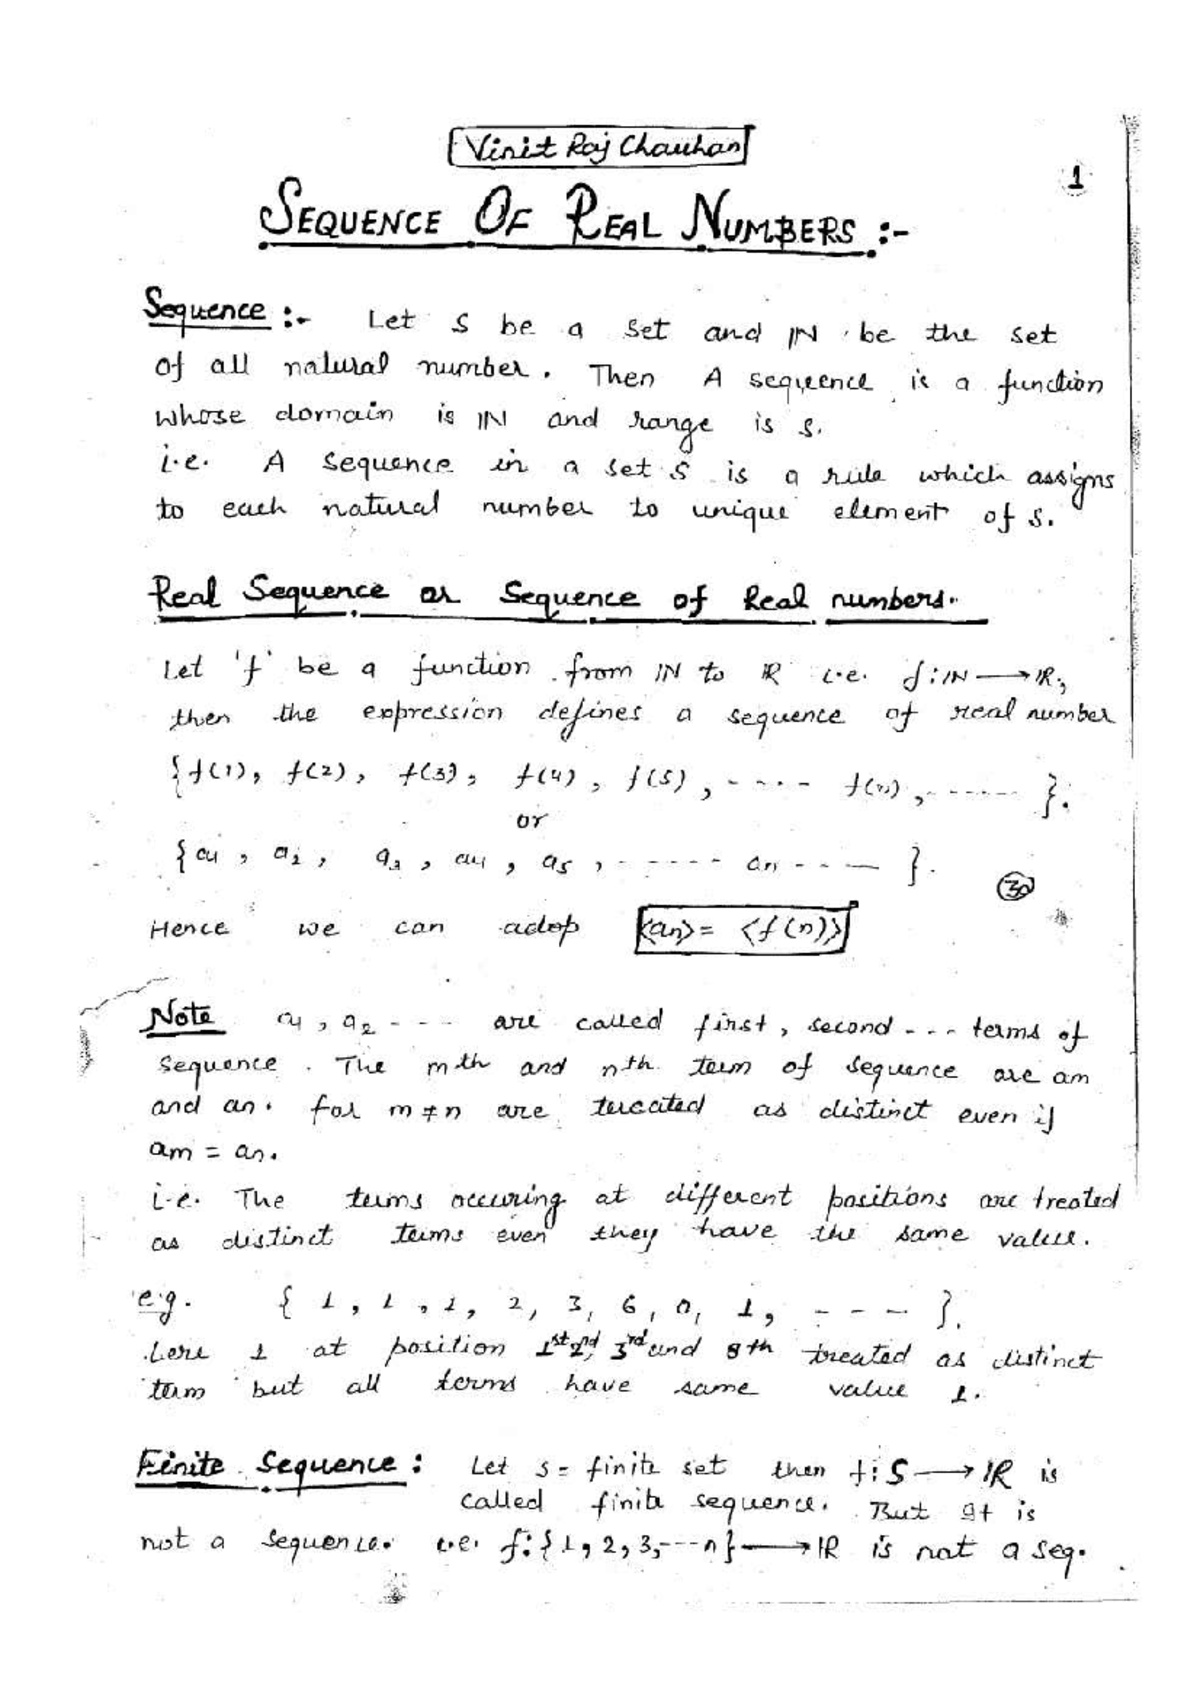 Vinit Raj Chauhan
1
SEQUENCE OF REAL NUMBERS :-
Sequence :- Let S be a set and IN be the set
of all natural number. Then A sequence is a function
whose domain is IN and range is S.
i.e. A sequence in a set S is a rule which assigns
to each natural number to unique element of S.
Real Sequence or Sequence of Real numbers.
Let 'f' be a function from IN to IR i.e. f: IN → IR,
then the expression defines a sequence of real number
{f(1), f(2), f(3), f(4), f(5), ----- f(n), ------ }.
or
{a1, a2, a3, a4, a5, ------ an --- — }.
30
Hence we can adop <an> = <f(n)>
Note a1, a2 --- are called first, second --- terms of
sequence. The mth and nth term of sequence are am
and an. for m ≠ n are treated as distinct even if
am = an.
i.e. The terms occuring at different positions are treated
as distinct terms even they have the same value.
e.g. { 1, 1, 1, 2, 3, 6, 0, 1, --- }.
here 1 at position 1st 2nd, 3rd and 8th treated as distinct
term but all terms have same value 1.
Finite Sequence : Let S = finite set then f: S → IR is
called finite sequence. But It is
not a sequence. i.e. f: {1, 2, 3, --- n} → IR is not a seq.